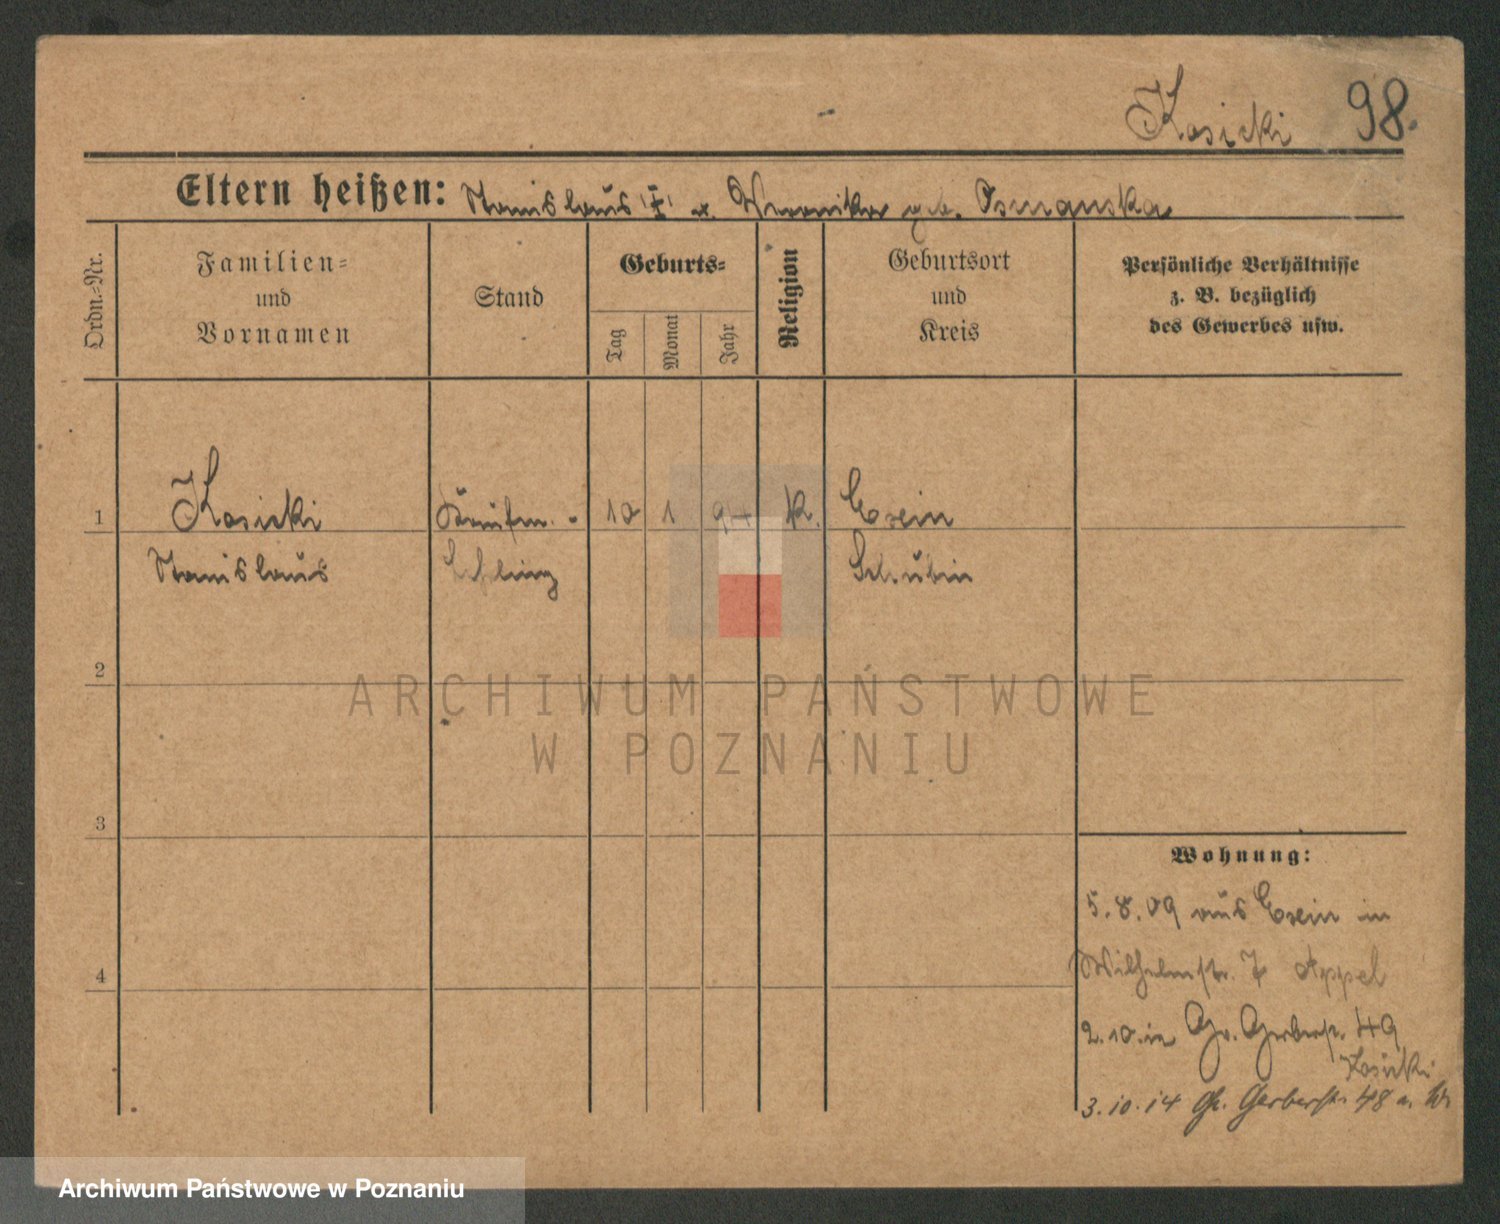 Kosicki 98.
Eltern heißen: Stanislaus "†" u. Veronika geb. Osmanska
Ordn.-Nr.
Familien-
und
Vornamen
Stand
Geburts-
Tag
Monat
Jahr
Religion
Geburtsort
und
Kreis
Persönliche Verhältnisse
z. B. bezüglich
des Gewerbes usw.
1 Kosicki Kaufm. - 10 1 94 k. Exin
Stanislaus Lehrling Schubin
2
3
4
Wohnung:
5.8.09 aus Exin in
Wilhelmstr. 7 Appel
2.10. in Gr. Gerberstr. 49
Kosicki
3.10.14 Gr. Gerberstr. 48 a.
ARCHIWUM PAŃSTWOWE
W POZNANIU
Archiwum Państwowe w Poznaniu